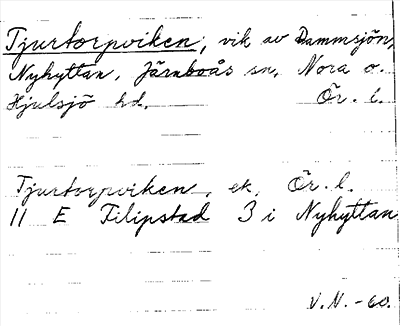 Tjurtorpviken, vik av Dammsjön,
Nyhyttan, Järnboås sn, Nora o.
Hjulsjö hd. Ör. l.
Tjurtorpviken, ek, Ör. l.
11 E Filipstad 3 i Nyhyttan
V.N. -60.